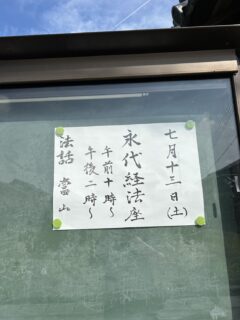 七月十三日(土)
永代経法座
午前十時～
午後二時～
法話 當山